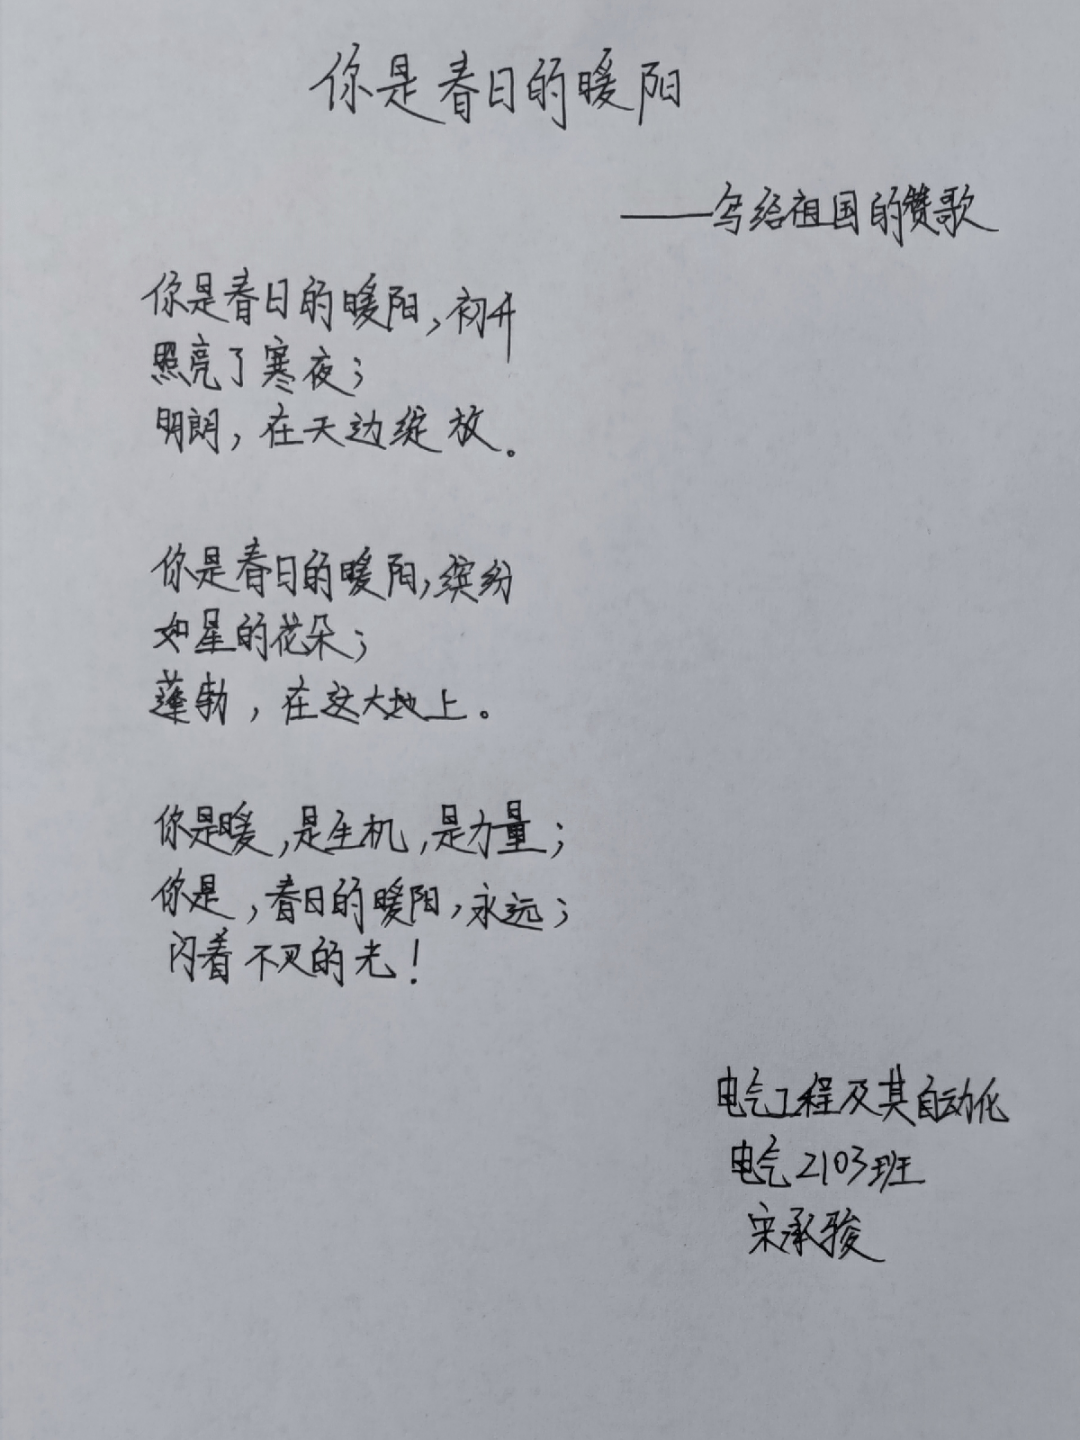 你是春日的暖阳
——写给祖国的赞歌
你是春日的暖阳,初升
照亮了寒夜;
明朗,在天边绽放。
你是春日的暖阳,缤纷
如星的花朵;
蓬勃,在这大地上。
你是暖,是生机,是力量;
你是,春日的暖阳,永远;
闪着不灭的光!
电气工程及其自动化
电气2103班
宋承骏